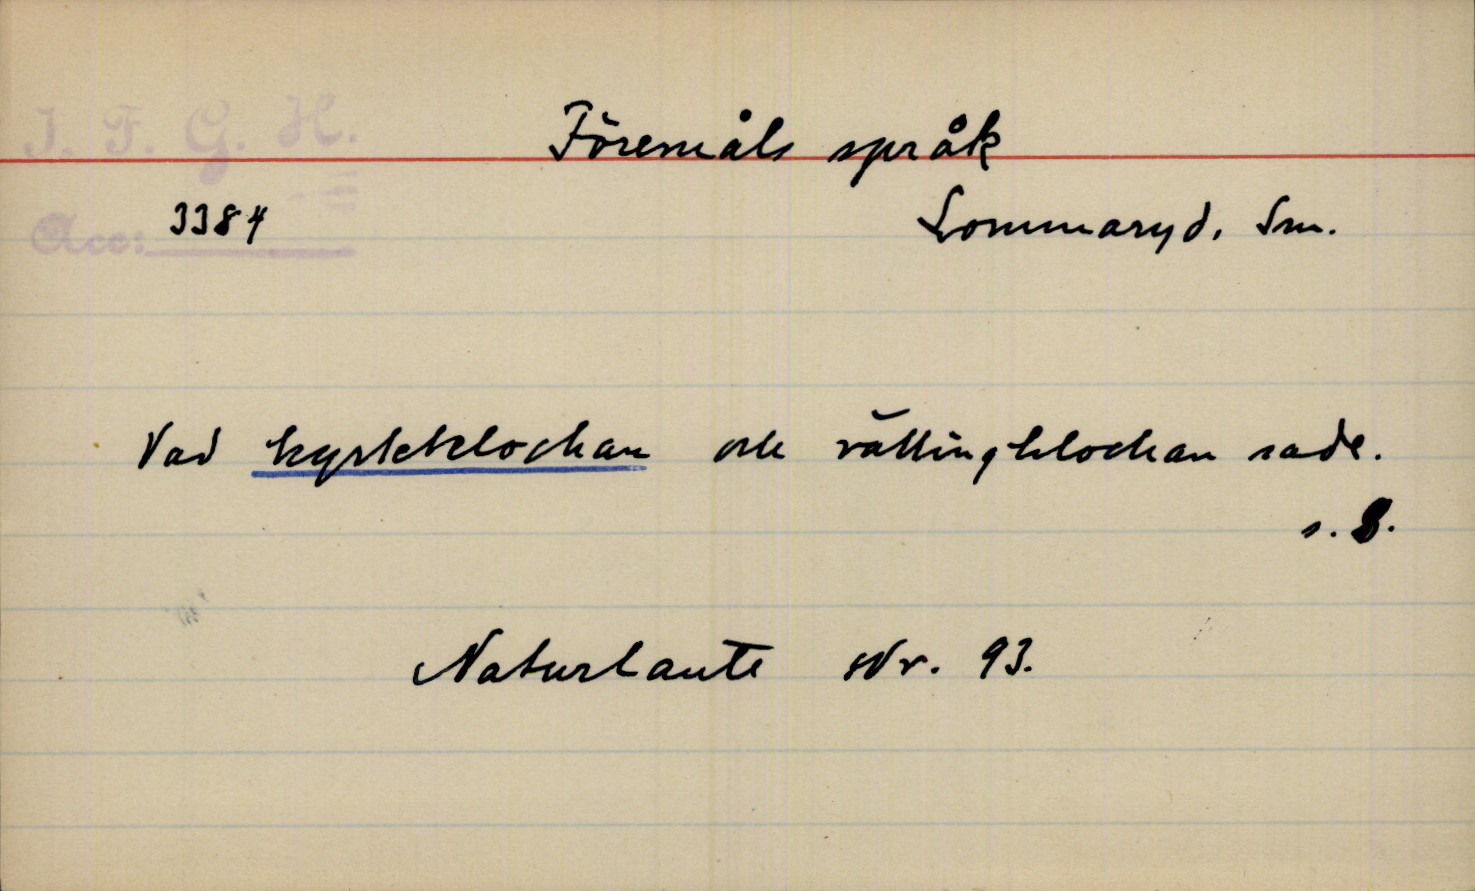 I. F. G. H.
Föremåls språk
Acc: 3384
Lommaryd. Sm.
Vad kyrkeklockan och vällingklockan sade.
s. 8.
Naturlaute Nr. 93.